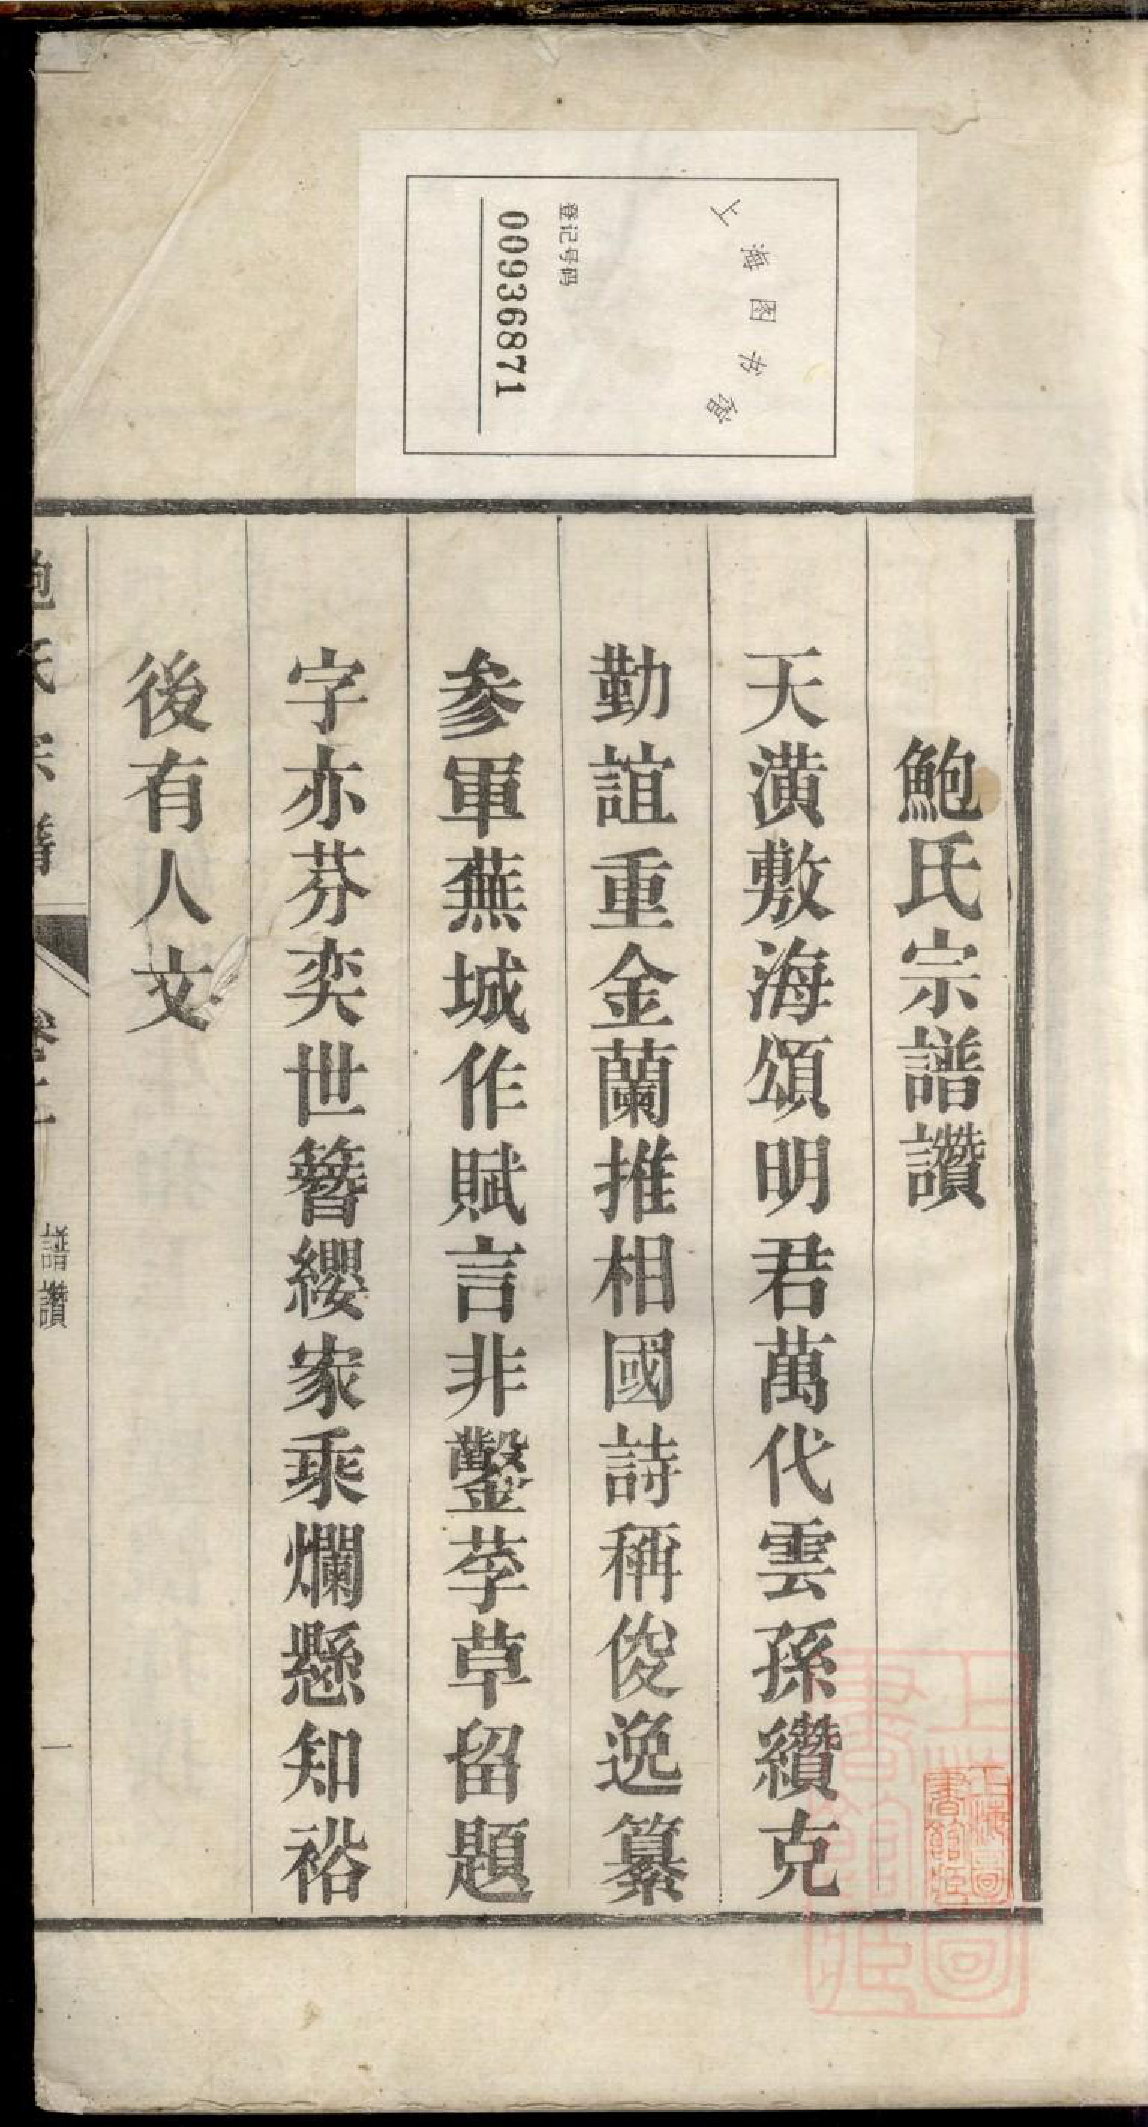 上海图书馆
登记号码
00936871
鮑氏宗譜讚
天潢敷海頌明君萬代雲孫纘克
勤誼重金蘭推相國詩稱俊逸纂
參軍蕪城作賦言非鑿荸草留題
字亦芬奕世簪纓家乘爛懸知裕
後有人文
鮑氏宗譜
譜讚
一
上海圖書館藏
上海圖書館藏